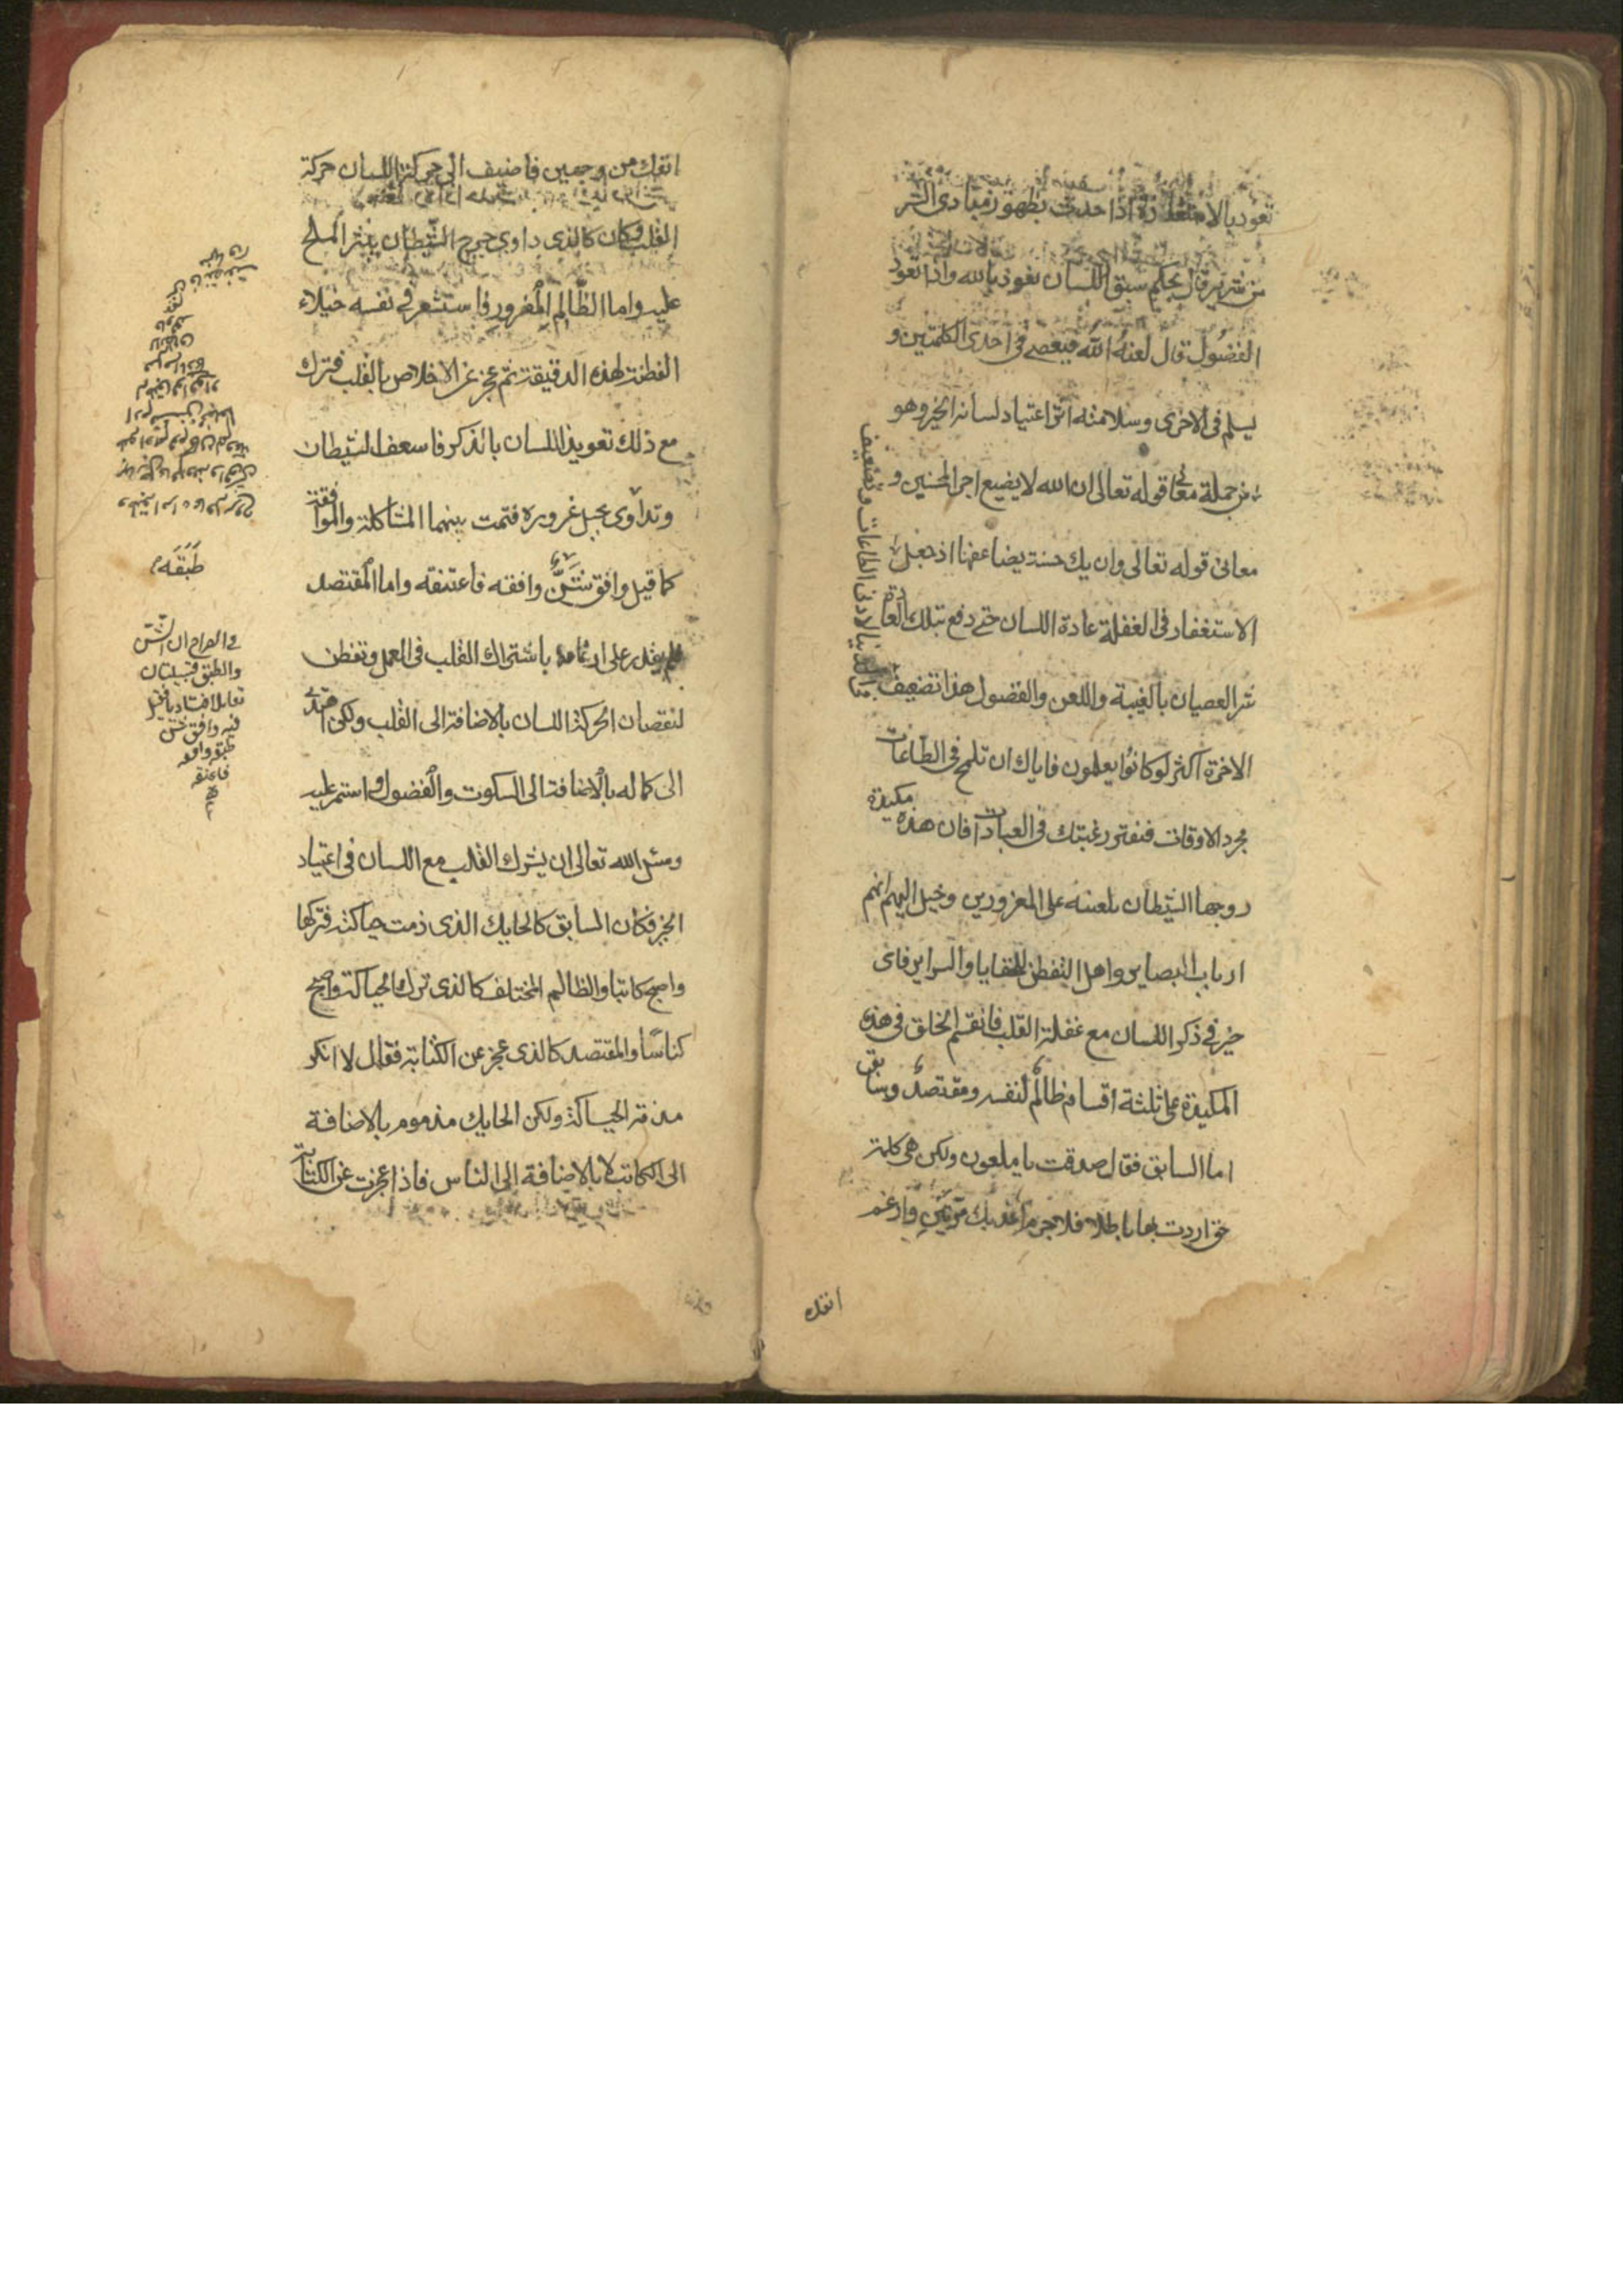 تعود بالاستغفار اذا حدث بظهور مبادى الشر
من شرير قال بحكم سبق اللسان نعوذ بالله واذا تعود
الفضول قال لعنه الله فيعصى فى احدى الكلمتين و
يسلم فى الاخرى وسلامته اثر اعتياد لسانه الخير وهو
من جملة معانى قوله تعالى ان الله لا يضيع اجر المحسنين و
معانى قوله تعالى وان يك حسنة يضاعفها اذ جعل
الاستغفار فى الغفلة عادة اللسان حتى دفع بتلك العادة
شر العصيان بالغيبة واللعن والفضول هذا تضعيف
فى الدنيا لادنى الطاعات وتضعيف
الاخرة اكثر لو كانوا يعلمون فاياك ان تلمح فى الطاعات
مجرد الاوقات فتفتر رغبتك فى العبادات فان هذه مكيدة
روجها الشيطان بلعنه على المغرورين وخيل اليهم انهم
ارباب البصاير واهل التفطن للخفايا والسراير فاى
خير فى ذكر اللسان مع غفلة القلب فانقسم الخلق فى هذه
المكيدة على ثلثة اقسام ظالم لنفسه ومقتصد وسابق
اما السابق فقال صدقت يا ملعون ولكن هى كلمة
حق اردت بها باطلا فلا جرم اعذبك مرتين وارغم
انفك
انفك من وجهين فاضيف الى حركة اللسان حركة
القلب فكان كالذى داوى جرح الشيطان بنثر الملح
عليه واما الظالم المغرور فاستشعر فى نفسه خيلاء
الفطنة لهذه الدقيقة ثم عجز عن الاخلاص بالقلب فترك
مع ذلك تعويد اللسان بالذكر فاسعف الشيطان
وتداوى بحبل غروره فتمت بينهما المشاكلة والموافقة
كما قيل وافق شن وافقه فاعتنقه واما المقتصد
فلم يقدر على ارغامه باشتراك القلب فى العمل وتفطن
لنقصان الحركة اللسان بالاضافة الى القلب ولكن اهتدى
الى كماله بالاضافة الى السكوت والفضول واستمر عليه
وسئل الله تعالى ان يشرك القلب مع اللسان فى اعتياد
الخير فكان السابق كالحايك الذى ذمت حياكته فتركها
واصبح كاتبا والظالم المختلف كالذى ترك الحياكة واصبح
كناسا والمقتصد كالذى عجز عن الكتابة فقال لا انكر
مذمة الحياكة ولكن الحايك مذموم بالاضافة
الى الكاتب لا بالاضافة الى الناس فاذا عجزت عن الكتابة
طبقه
والطبق قبيلتان
فاعتنقه